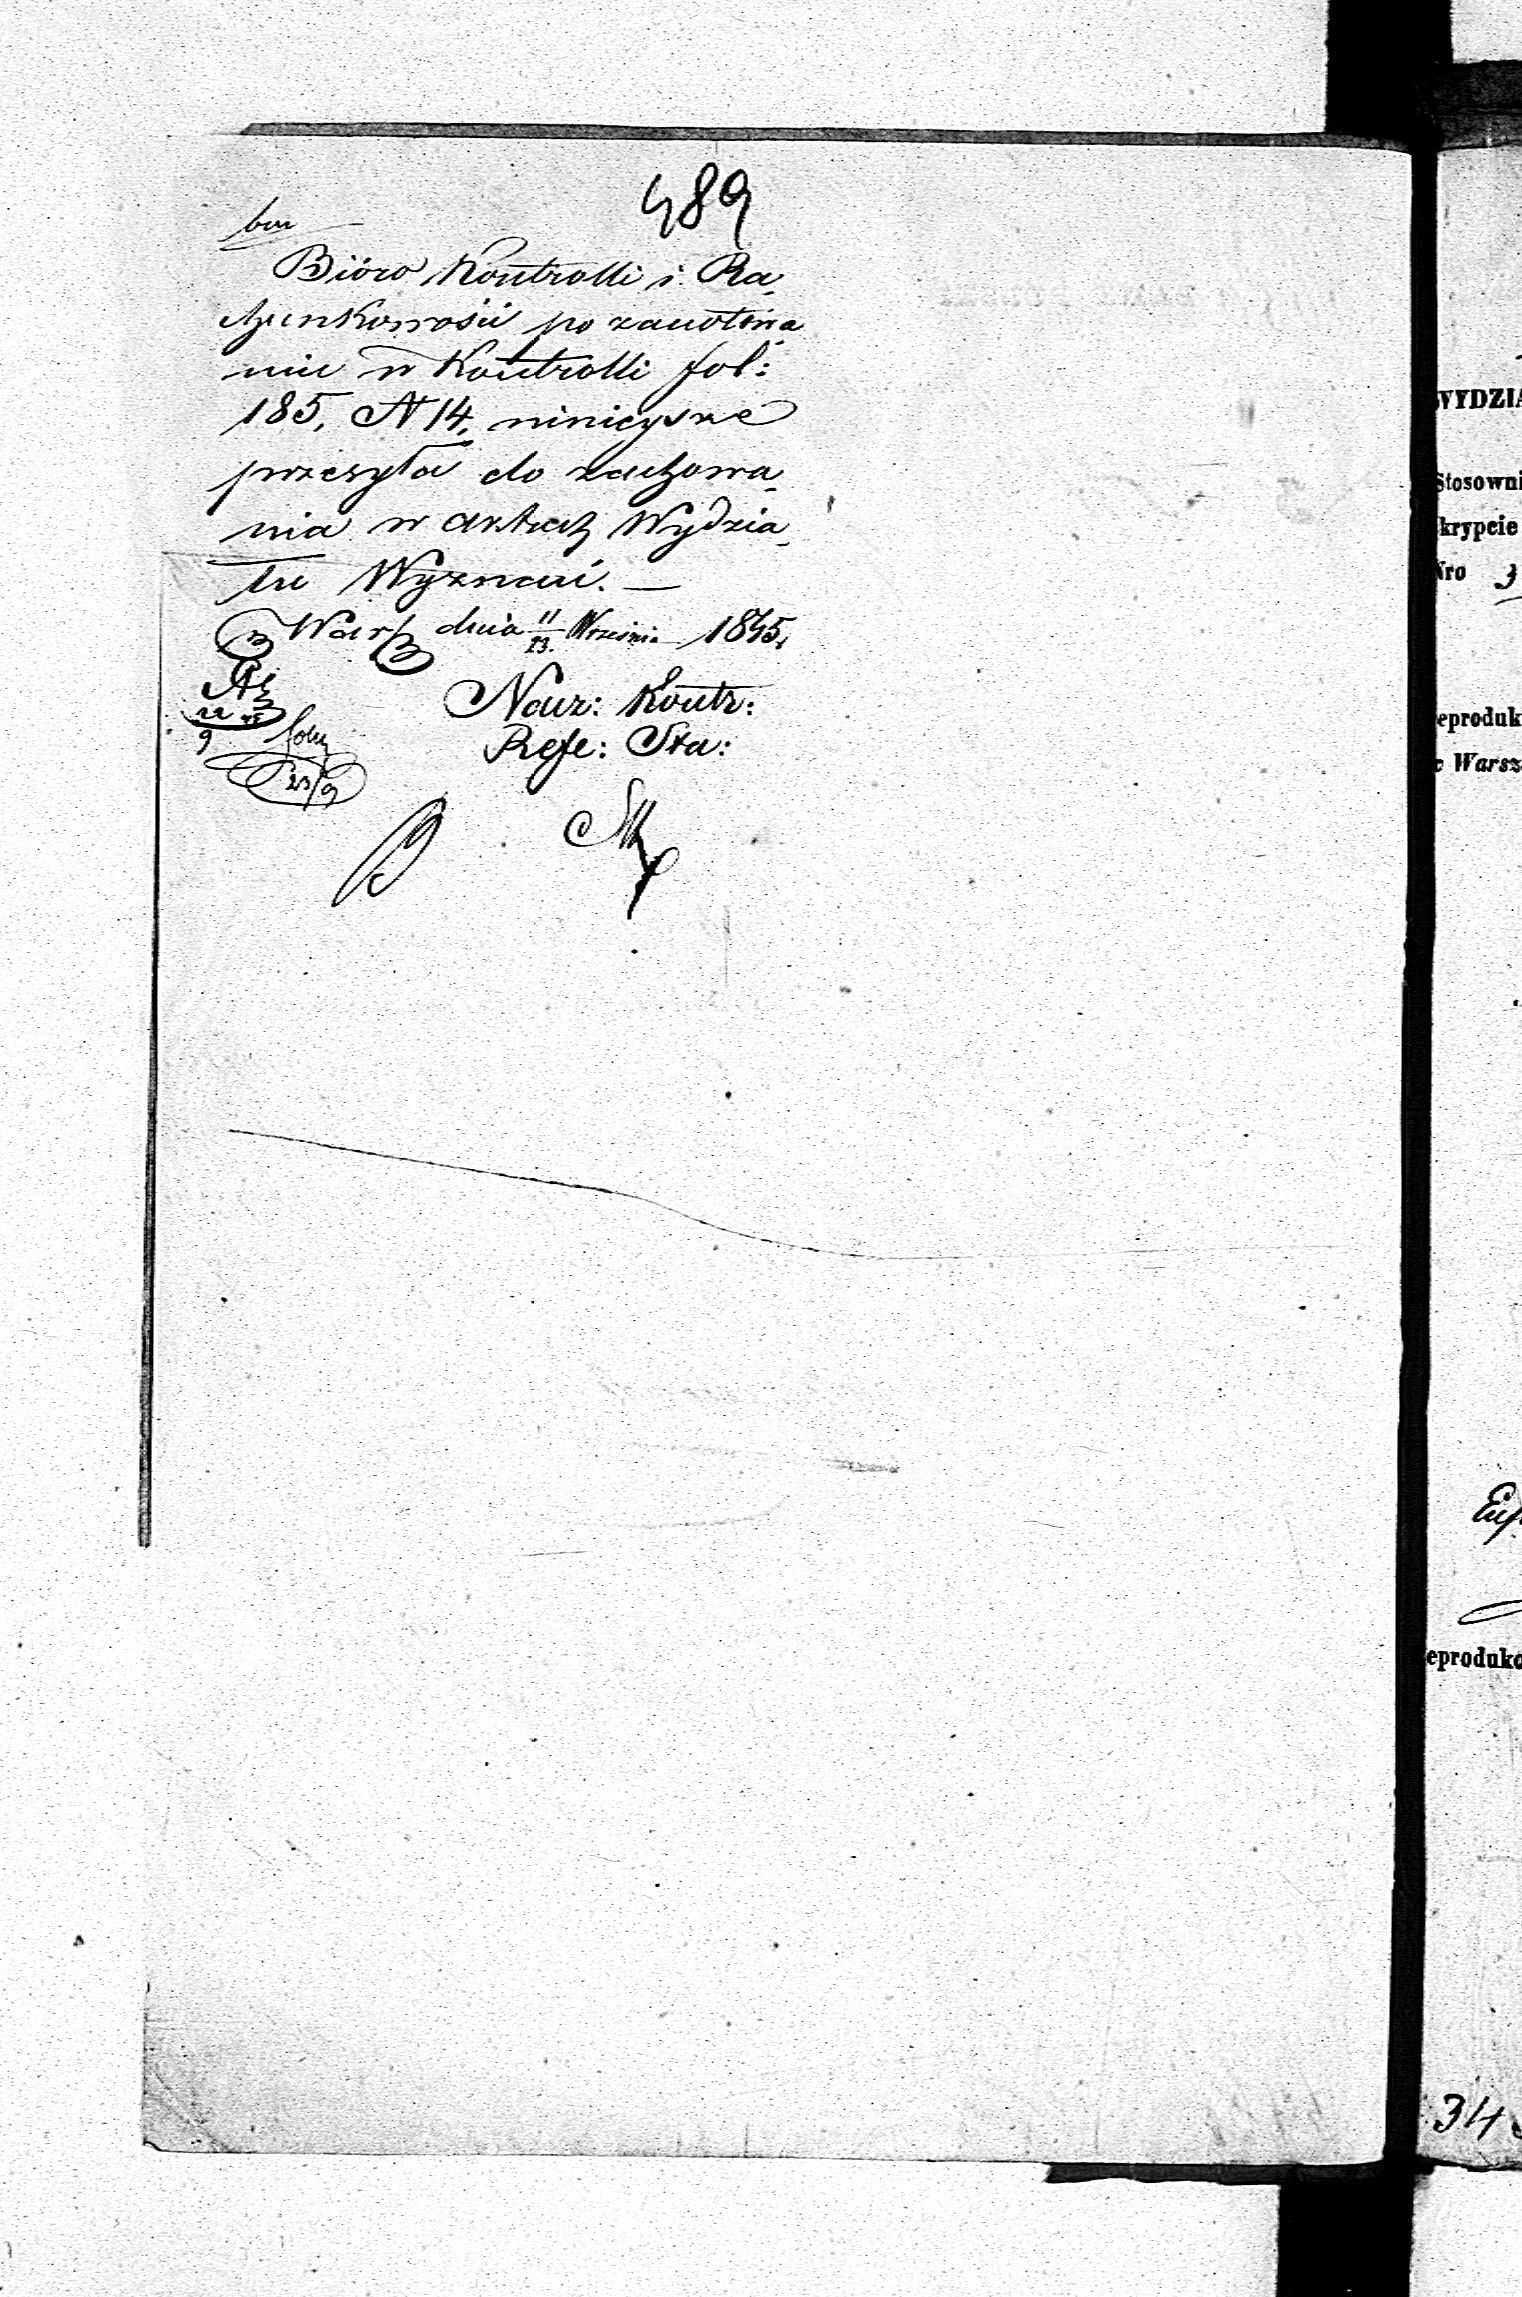 489
Bióro Kontrolli i Ra-
chunkowości po zanotowa-
niu w Kontrolli fol:
185, N 14, niniejsze
przesyła do zachowa-
nia w aktach Wydzia-
łu Wyznań. —
Wars dnia 11/23. Września 1845.
Nacz: Kontr:
Refe: Sta:
23/9
WYDZIA
Stosowni
krypcie
Nro 3
eproduk
c Warsz
eproduko
34